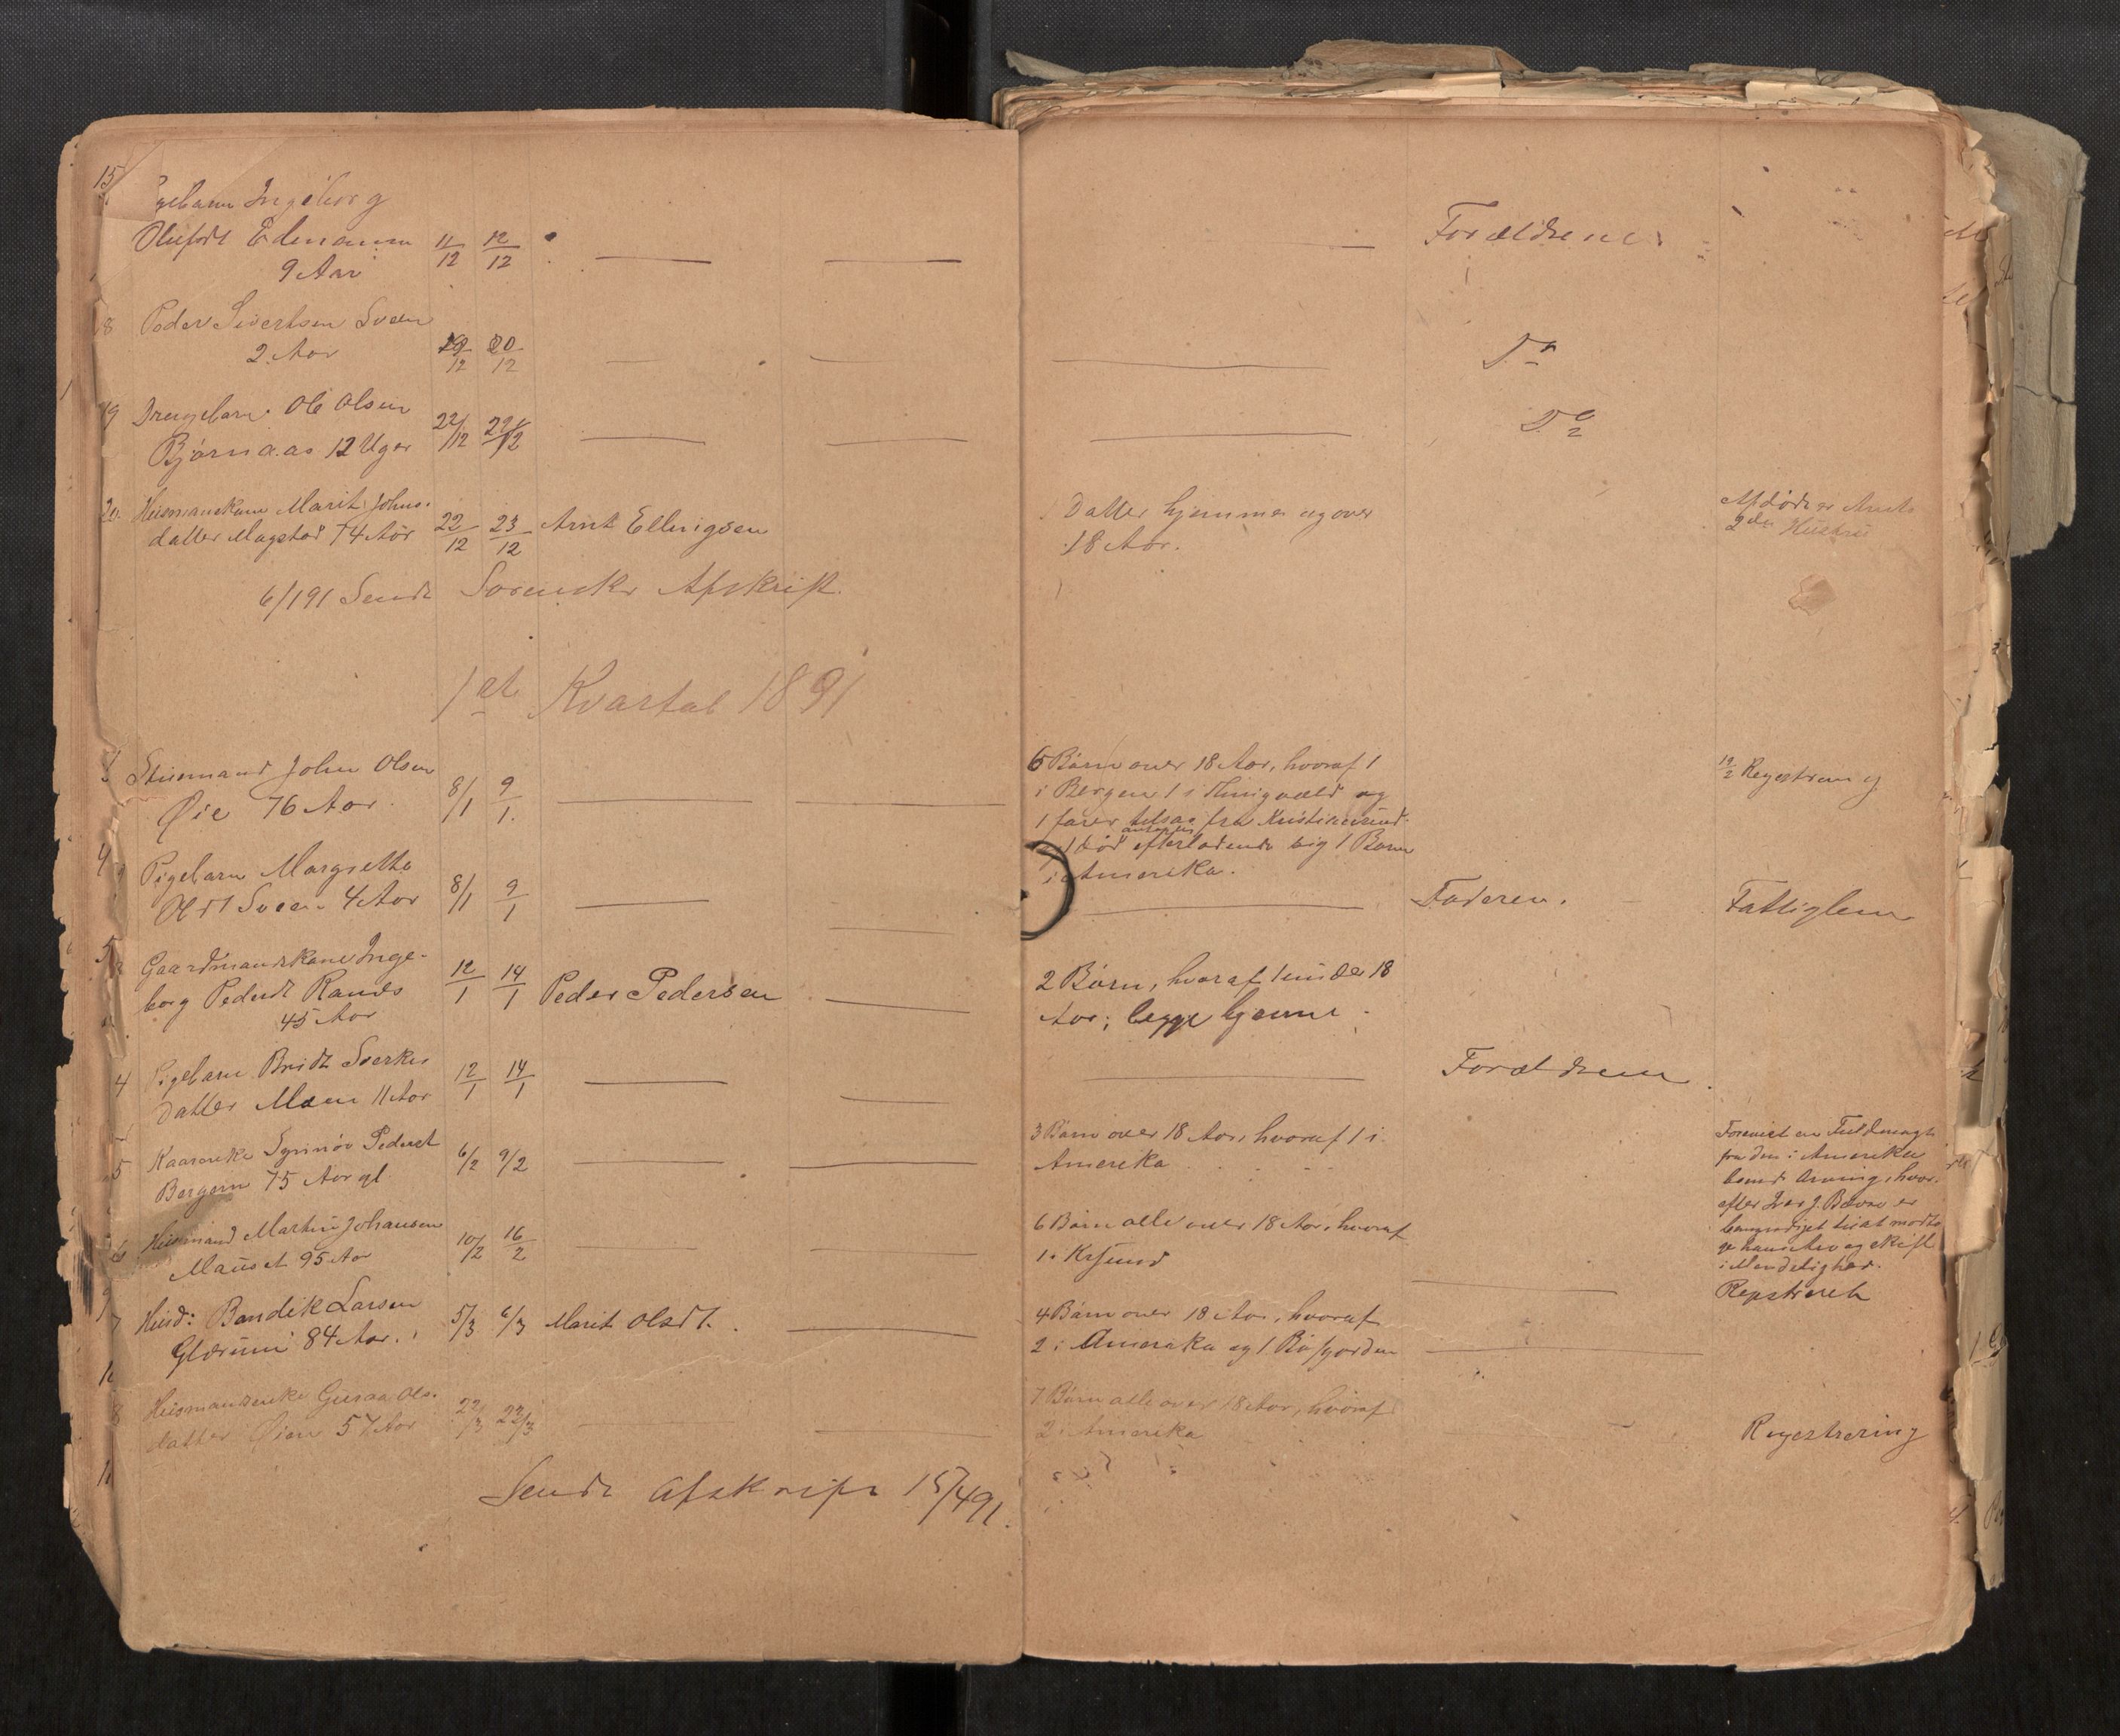 15
Ingeborg
Olufsdt Edmann 11/12 12/12 Forældrene
9 Aar
8 Peder Sivertsen Sveen
2 Aar 19/12 20/12 Do
19 Drengebarn Ole Olsen
Bjørnaas 12 Uger 22/12 22/12 Do
20 Huusmandskone Marit Johns-
datter Magstad 74 Aar 22/12 23/12 Arnt Ellingsen
Datter hjemme og over
18 Aar.
Afdøde er Arnts
2den Hustru
6/1 91 Sendt Sorenskr Afskrift.
1st Kvartal 1891
John Olsen
Øie 76 Aar 8/1 9/1
6 Børn over 18 Aar, hvoraf 1
i Bergen 1 i Thingvold og
1 farer tilsøs fra Kristiansund
1 død efterladende sig 1 Barn
i Amerika.
19/2 Regestrering
Pigebarn Margrethe
Olsdt Sveen 4 Aar 8/1 9/1 Faderen. Fattiglem
Gaardmandskone Inge-
borg Pedersdt Ranes 12/1 14/1 Peder Pedersen
45 Aar
2 Børn, hvoraf 1 under 18
Aar; begge hjemme
4 Pigebarn Bridt Sverkes
datter Moen 11 Aar 12/1 14/1 Forældrene.
5 Kaarenke Synnøv Pedersdt
Bergem 75 Aar gl 6/2 9/2
3 Børn over 18 Aar, hvoraf 1 i
Amerika
Forevist en Fuldmagt
fra den i Amerika
boende Arving, hvor-
efter
bemyndiget til at modta
ge hans Arv og skift
i Mindelighed.
6 Huusmand Martin Johansen
Mauset 95 Aar 10/2 16/2
6 Børn alle over 18 Aar, hvoraf
1 i Krsund
Registreret
7 Huusd: Bendik Larsen
Glærum 84 Aar. 5/3 6/3 Marit Olsdt.
4 Børn over 18 Aar, hvoraf
2 i Amerika og 1 Bøfjorden
8 Huusmandsenke Guraa Ols-
datter Øien 57 Aar 22/3 22/3
7 Børn alle over 18 Aar, hvoraf
2 i Amerika
Regestrering
Sendt Afskrift 15/4 91.